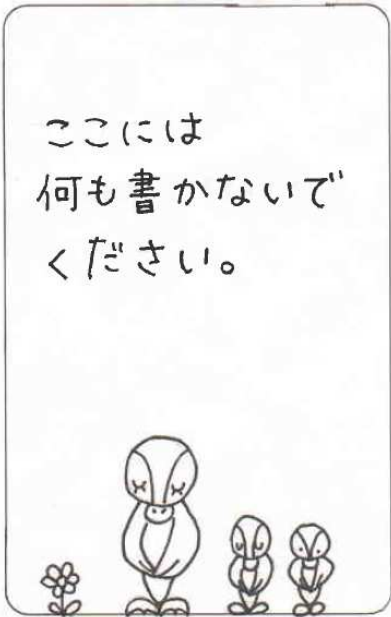 ここには
何も書かないで
ください。